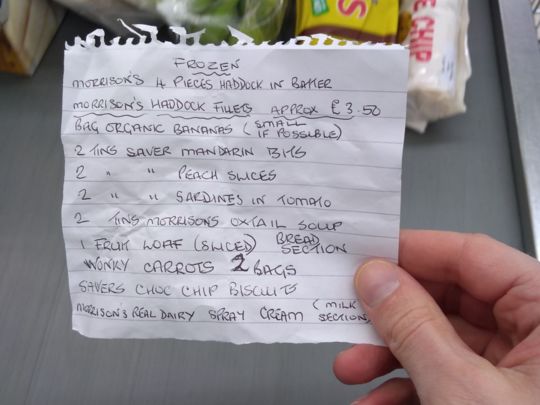 S
E CHIP
FROZEN
MORRISON'S 4 PIECES HADDOCK IN BATTER
MORRISON'S HADDOCK FILLETS APPROX £3.50
BAG ORGANIC BANANAS (SMALL IF POSSIBLE)
2 TINS SAVER MANDARIN BITS
2 " " PEACH SLICES
2 " " SARDINES IN TOMATO
2 TINS MORRISONS OXTAIL SOUP
1 FRUIT LOAF (SLICED) BREAD SECTION
WONKY CARROTS 2 BAGS
SAVERS CHOC CHIP BISCUITS
MORRISON'S REAL DAIRY SPRAY CREAM (MILK SECTION)